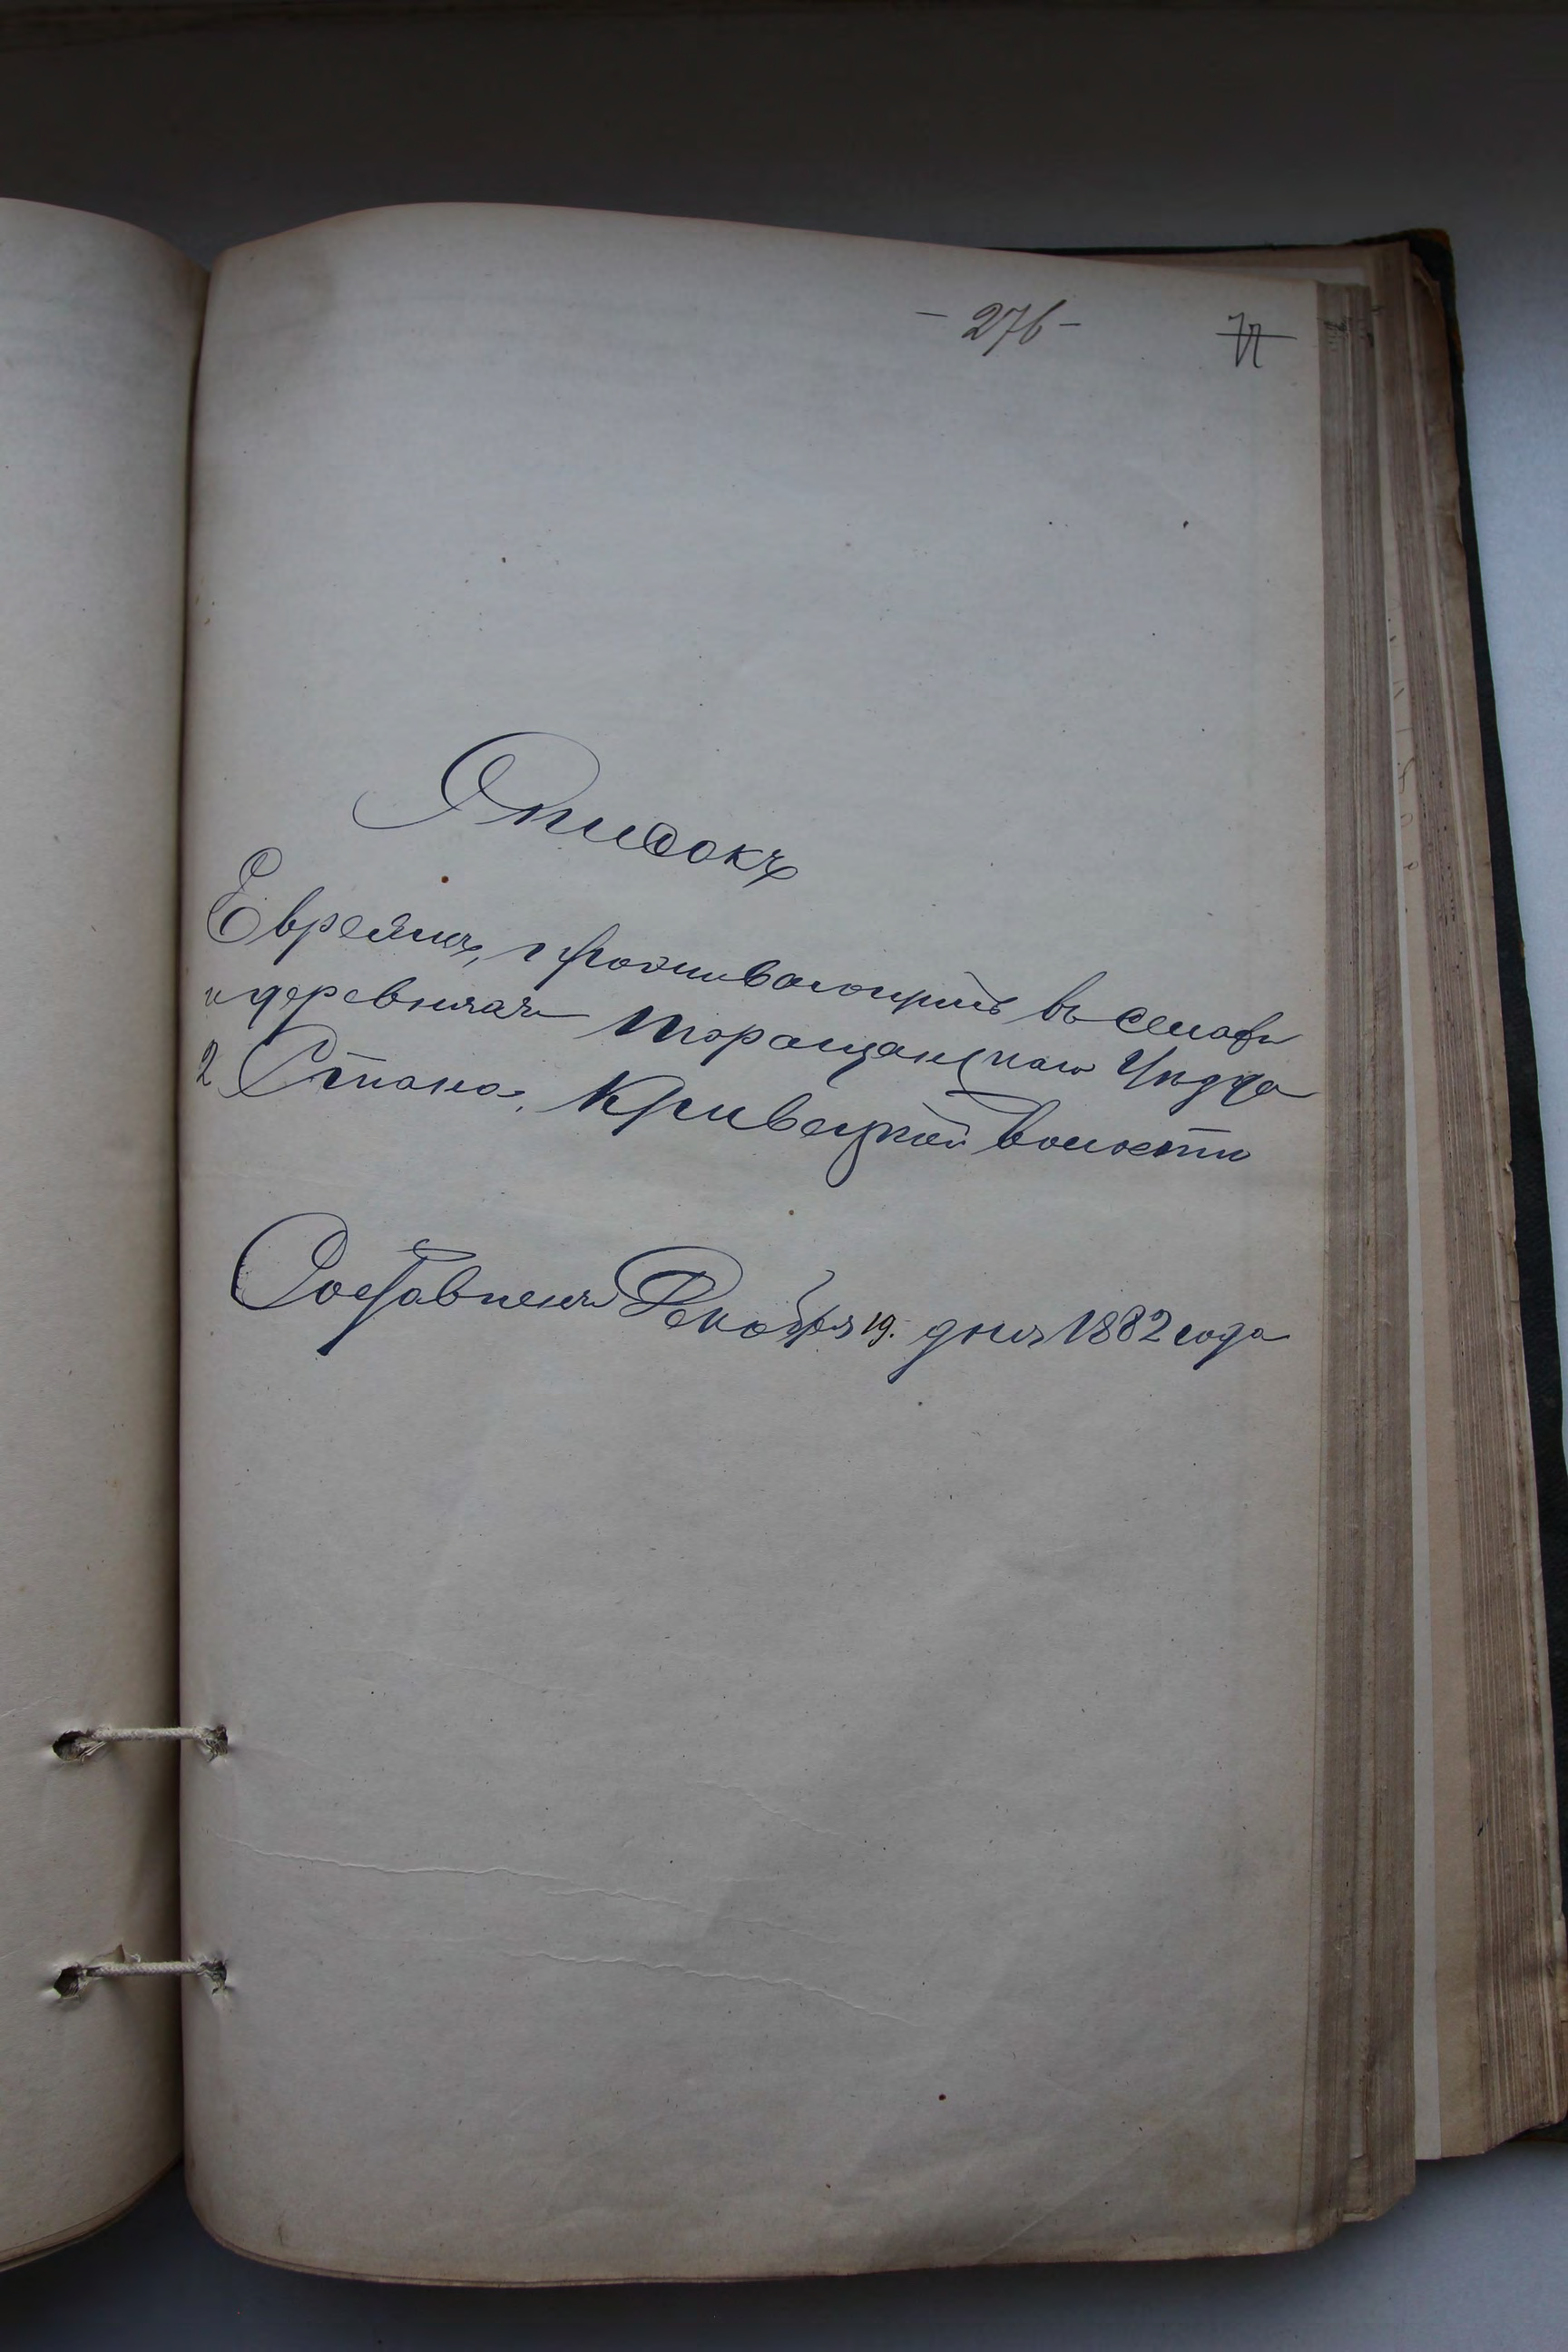 - 276 -
Списокъ
Евреямъ, проживающимъ въ селахъ
и деревняхъ Таращанскаго Уѣзда
2 Стана, Кривецкой волости
Составленъ Декабря 19. дня 1882 года